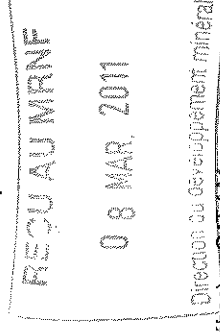 REÇU AU MRNF
08 MAR. 2011
Direction du développement minéral